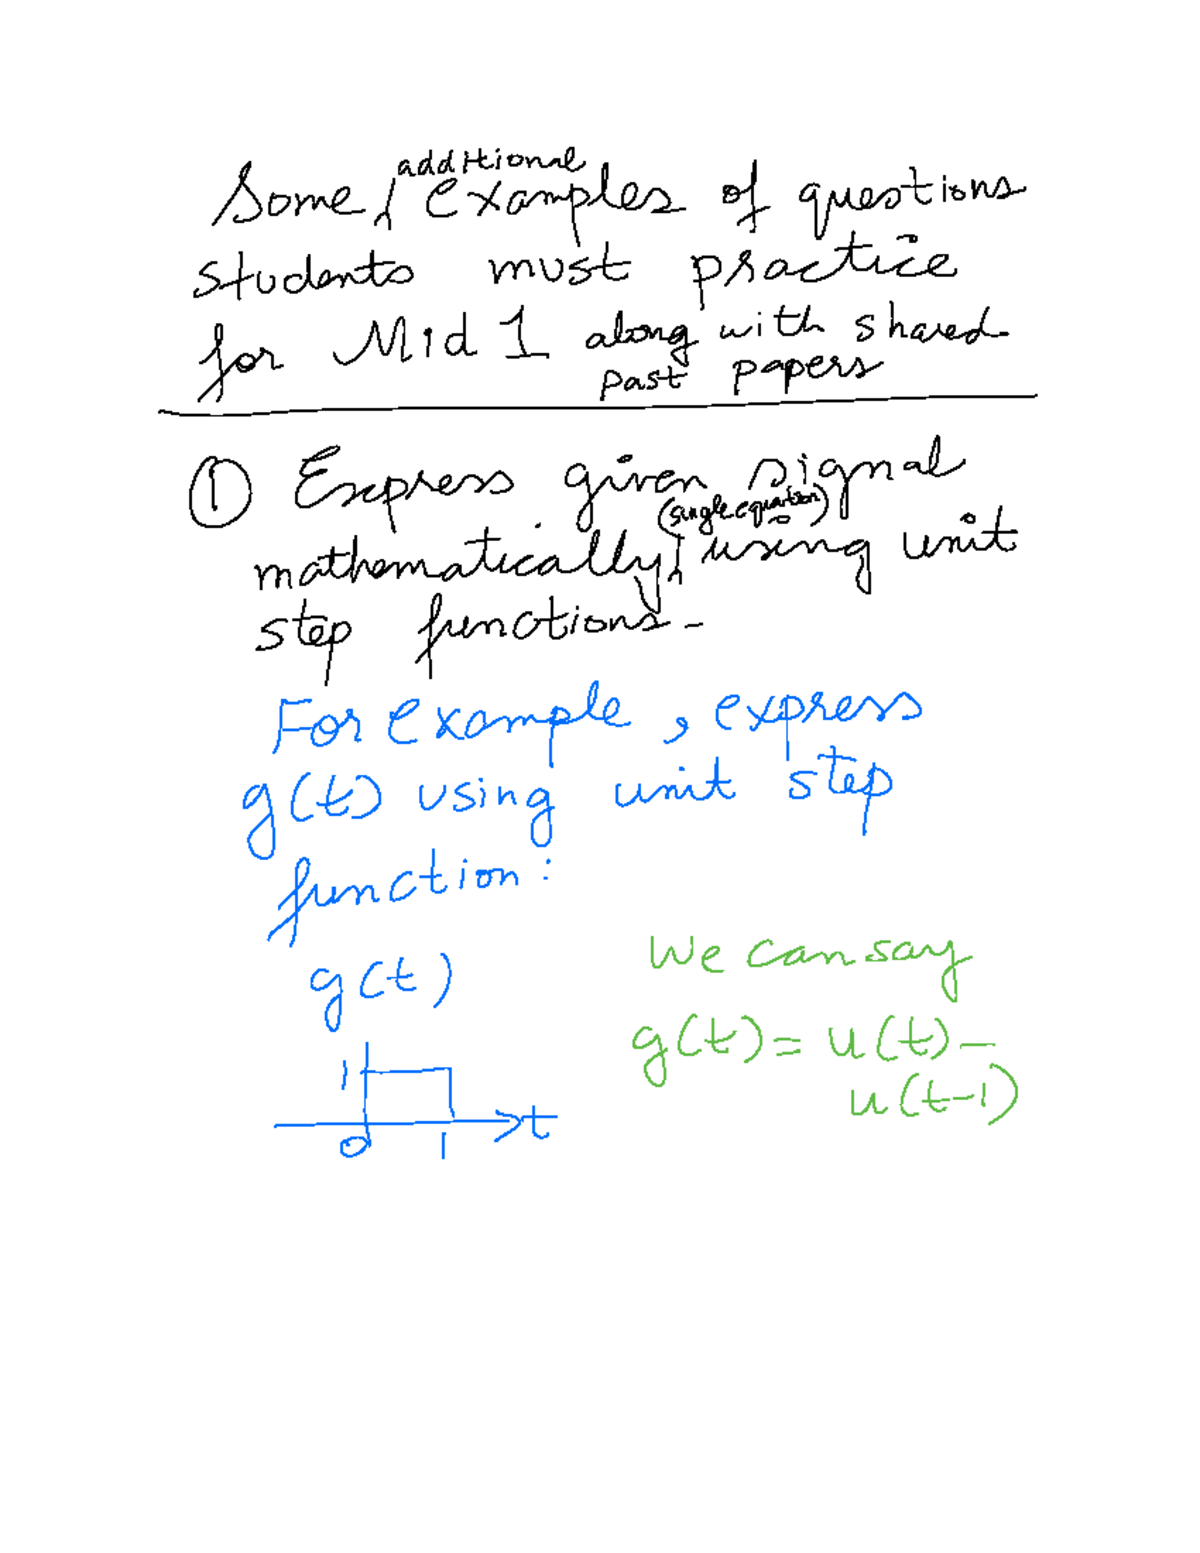 Some additional examples of questions
students must practice
for Mid 1 along with shared
past papers
① Express given signal
mathematically (single equation) using unit
step functions.
For example, express
g(t) using unit step
function:
g(t)
1
0 1 t
We can say
g(t) = u(t) -
u(t-1)